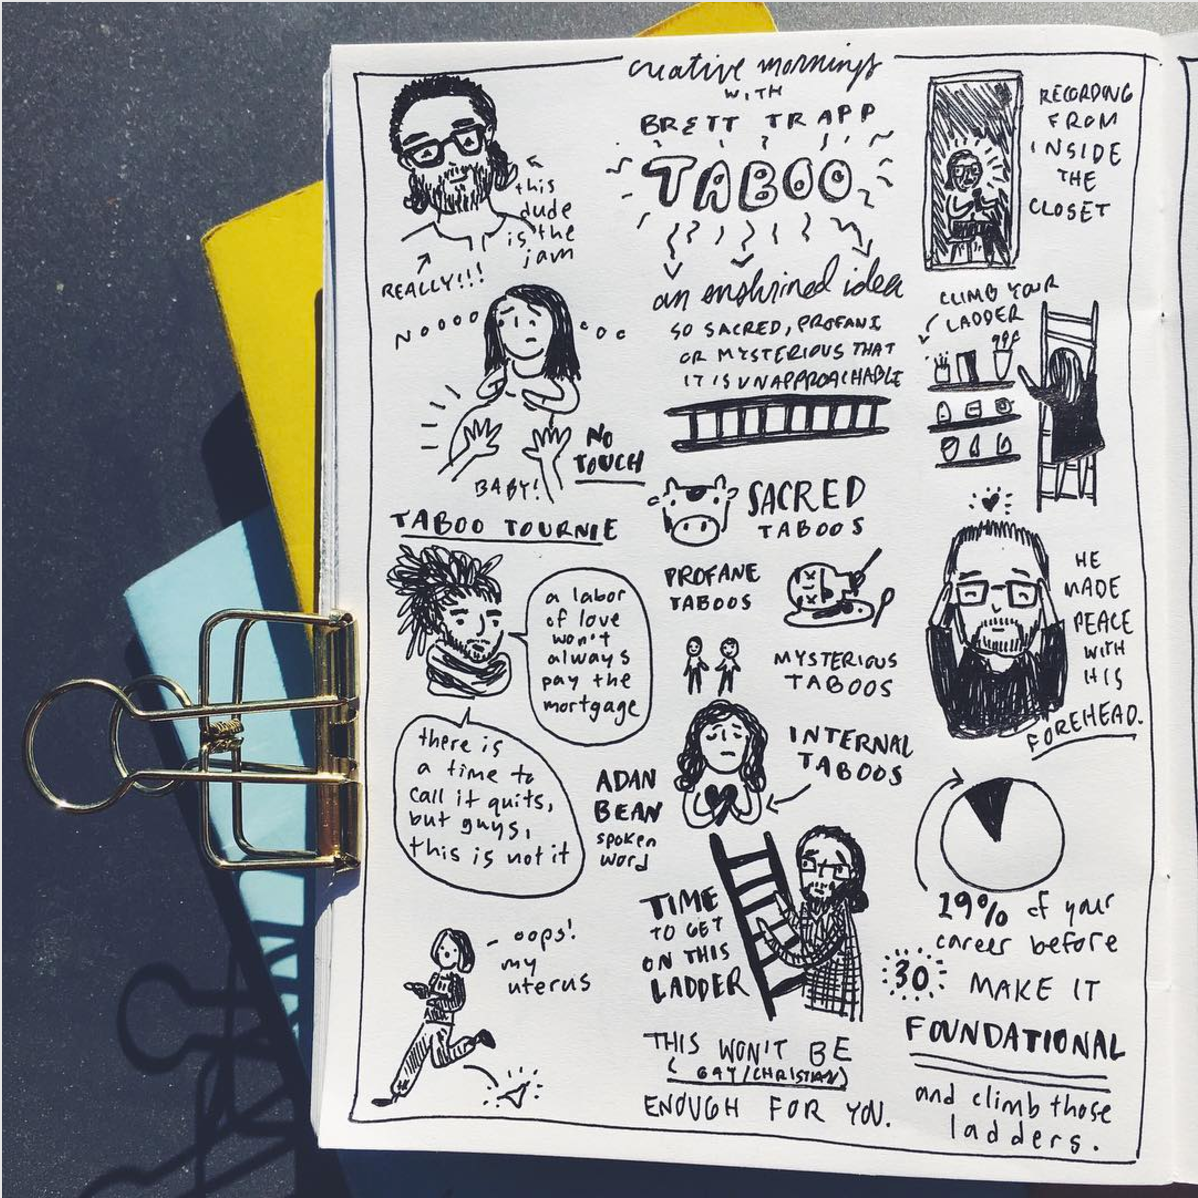 creative mornings
WITH
BRETT TRAPP
TABOO
an enshrined idea
SO SACRED, PROFANE
OR MYSTERIOUS THAT
IT IS UNAPPROACHABLE
this
dude
is the
jam
REALLY!!!
NOOOO
OOO
NO
TOUCH
BABY!
TABOO TOURNIE
a labor
of love
won't
always
pay the
mortgage
there is
a time to
call it quits,
but guys,
this is not it
ADAN
BEAN
spoken
word
- oops!
my
uterus
SACRED
TABOOS
PROFANE
TABOOS
MYSTERIOUS
TABOOS
INTERNAL
TABOOS
TIME
TO GET
ON THIS
LADDER
THIS WON'T BE
(GAY/CHRISTIAN)
ENOUGH FOR YOU.
RECORDING
FROM
INSIDE
THE
CLOSET
CLIMB YOUR
LADDER
HE
MADE
PEACE
WITH
HIS
FOREHEAD.
19% of your
career before
30
MAKE IT
FOUNDATIONAL
and climb those
ladders.